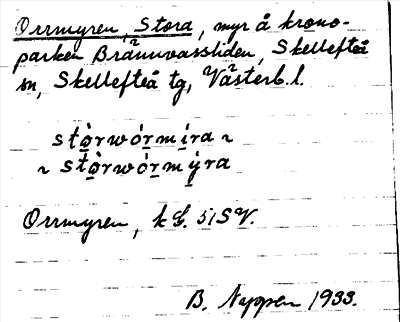 Orrmyren, Stora, myr å krono-
parken Brännvassliden, Skellefteå
sn, Skellefteå tg, Västerb. l.
stòrwórmira ~
~ stòrwórmýra
Orrmyren, k G. 51 SV.
B. Nyppen 1933.